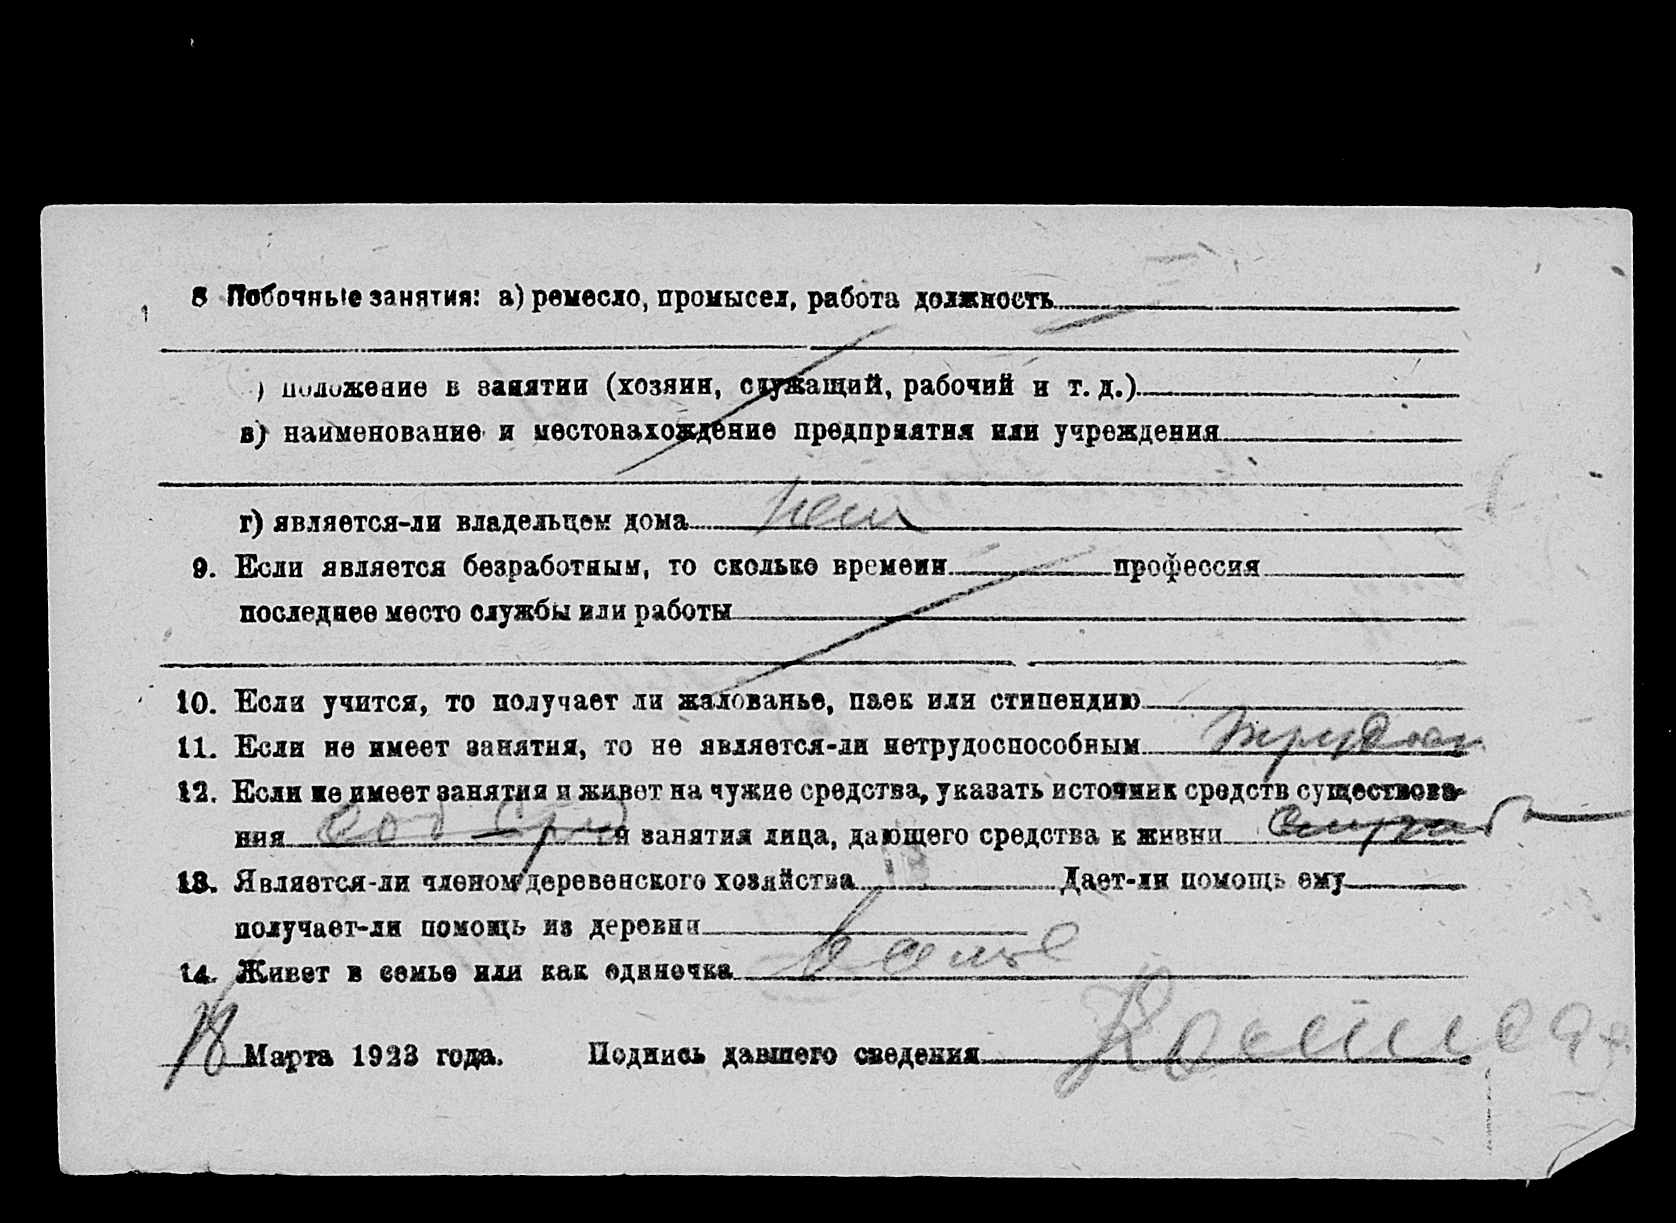 8 Побочные занятия: а) ремесло, промысел, работа должность
) положение в занятии (хозяин, служащий, рабочий и т. д.)
в) наименование и местонахождение предприятия или учреждения
г) является-ли владельцем дома нет
9. Если является безработным, то сколько времени профессия
последнее место службы или работы
10. Если учится, то получает ли жалованье, паек или стипендию
11. Если не имеет занятия, то не является-ли нетрудоспособным
12. Если не имеет занятия и живет на чужие средства, указать источник средств существова-
ния и занятия лица, дающего средства к жизни
13. Является-ли членом деревенского хозяйства Дает-ли помощь ему
получает-ли помощь из деревни
14. Живет в семье или как одиночка в семье
Марта 1923 года. Подпись давшего сведения